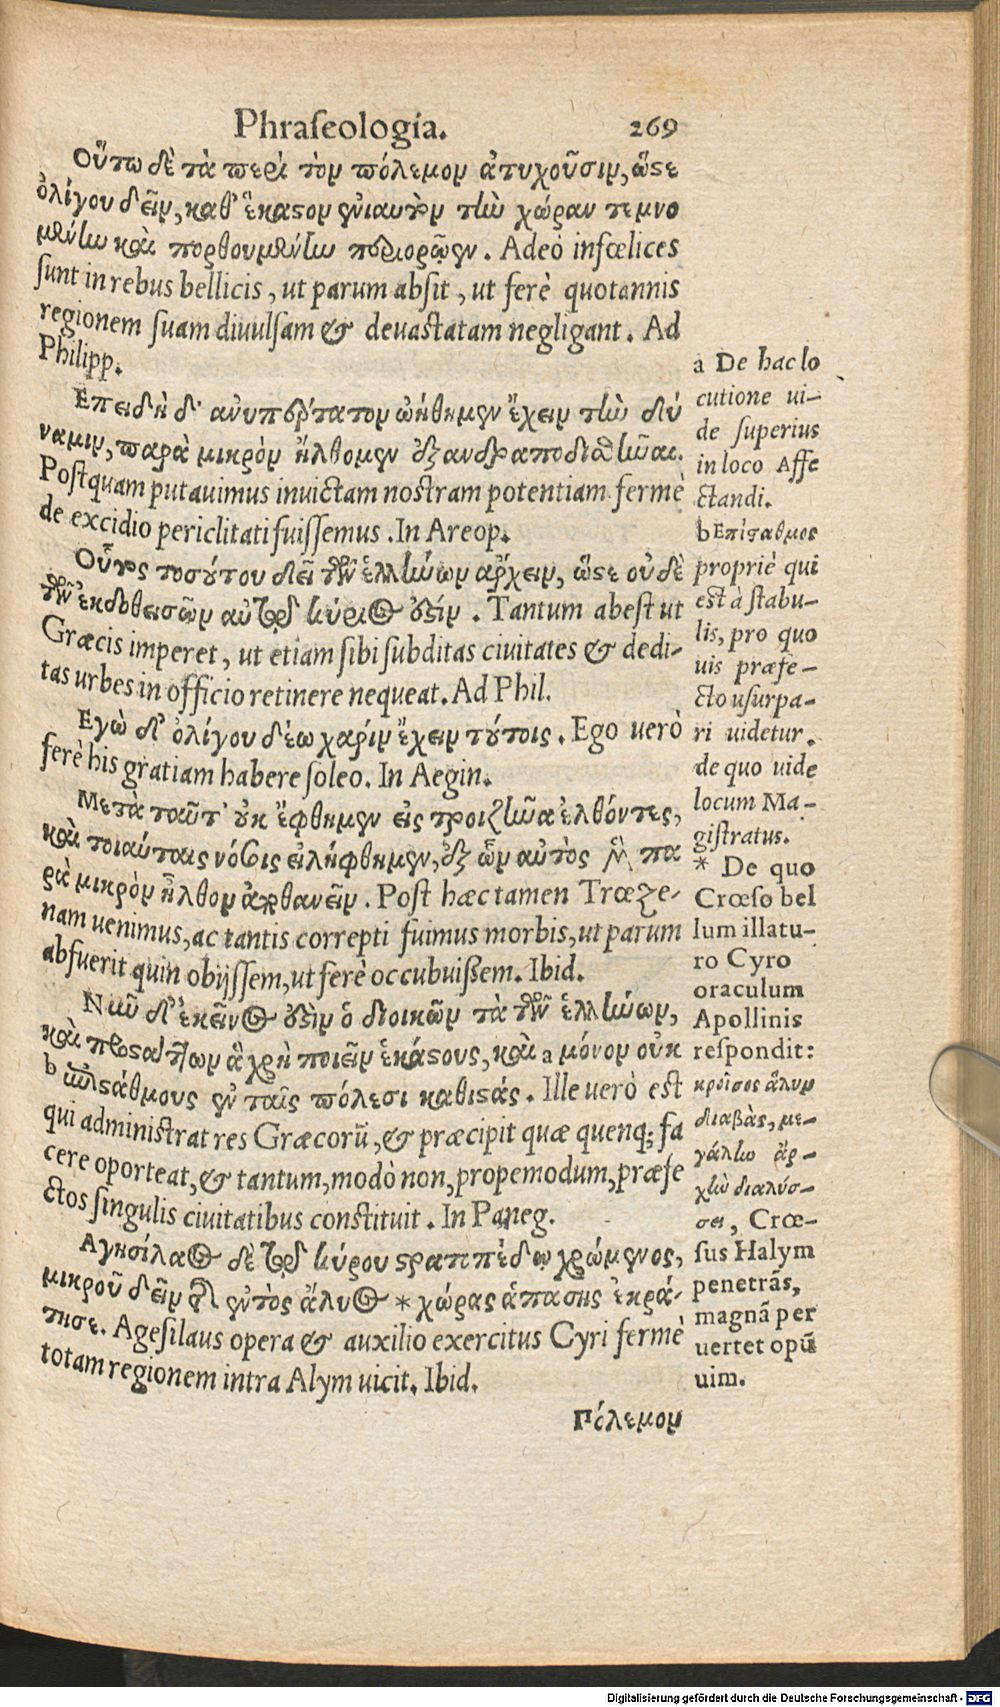 Phraseologia. 269
Οὕτω δὲ τὰ περὶ τὸν πόλεμον ἀτυχοῦσιν, ὥστε
ὀλίγου δεῖν, καθ' ἕκαστον ἐνιαυτὸν τὴν χώραν τεμνο
μένην καὶ πορθουμένην περιορῶσιν. Adeò infœlices
sunt in rebus bellicis, ut parum absit, ut ferè quotannis
regionem suam diuulsam & deuastatam negligant. Ad
Philipp.
Επειδὴ δ' ἀνυπέρβατον ᾠήθημεν ἔχειν τὴν δύ
ναμιν, παρὰ μικρὸν ἤλθομεν ἐξανδραποδισθῆναι.
Postquam putauimus inuictam nostram potentiam fermè
de excidio periclitati fuissemus. In Areop.
Οὗτος τοσούτου δεῖ τῶν ἑλλήνων ἄρχειν, ὥστε οὐδὲ
τῶν ἐκδοθεισῶν αὐτῷ κύριος ἐστίν. Tantum abest ut
Græcis imperet, ut etiam sibi subditas ciuitates & dedi-
tas urbes in officio retinere nequeat. Ad Phil.
Εγὼ δ' ὀλίγου δέω χάριν ἔχειν τούτοις. Ego uerò
ferè his gratiam habere soleo. In Aegin.
Μετὰ ταῦτ' οὐκ ἔφθημεν εἰς τροιζῆνα ἐλθόντες,
καὶ τοιαύταις νόσοις ἐλήφθημεν, ἐξ ὧν αὐτὸς μὲν πα
ρὰ μικρὸν ἦλθον ἀποθανεῖν. Post hæc tamen Trœze-
nam uenimus, ac tantis correpti fuimus morbis, ut parum
abfuerit quin obijssem, ut ferè occubuissem. Ibid.
Νῦν δ' ἐκεῖνος ἐστὶν ὁ διοικῶν τὰ τῶν ἑλλήνων,
καὶ προστάττων ἃ χρὴ ποιεῖν ἑκάστους, καὶ a μόνον οὐκ
b ἐπιστάθμους ἐν ταῖς πόλεσι καθιστάς. Ille uerò est
qui administrat res Græcorũ, & præcipit quæ quenq; fa
cere oporteat, & tantum, modò non, propemodum, præfe
ctos singulis ciuitatibus constituit. In Paneg.
Αγησίλαος δὲ τῷ κύρου στρατοπέδῳ χρώμενος,
μικροῦ δεῖν τῆς ἐντὸς ἅλυος * χώρας ἁπάσης ἐκρά-
τησε. Agesilaus opera & auxilio exercitus Cyri fermè
totam regionem intra Alym uicit. Ibid.
Πόλεμον
a De hac lo
cutione ui-
de superius
in loco Affe
ctandi.
b Επίσταθμος
propriè qui
est à stabu-
lis, pro quo
uis præfe-
cto usurpa-
ri uidetur.
de quo uide
locum Ma-
gistratus.
* De quo
Crœso bel
lum illatu-
ro Cyro
oraculum
Apollinis
respondit:
κροῖσος ἅλυν
διαβὰς, με-
γάλην ἀρ-
χὴν διαλύσ-
σει, Crœ-
sus Halym
penetrãs,
magnã per
uertet opũ
uim.
Digitalisierung gefördert durch die Deutsche Forschungsgemeinschaft - DFG